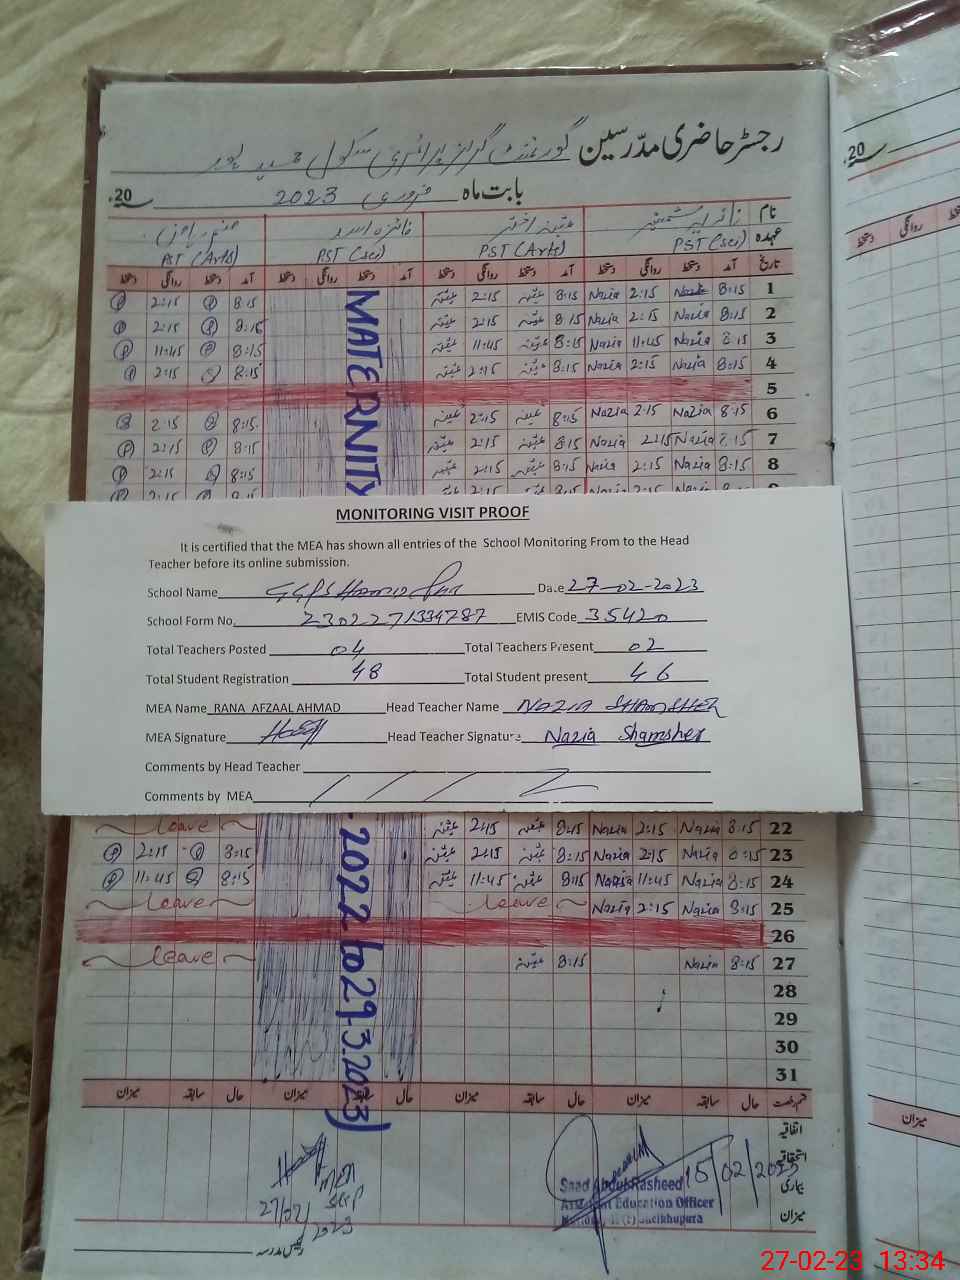 رجسٹر حاضری مدرسین گورنمنٹ گرلز پرائمری سکول حمید پور
بابت ماہ فروری 2023 20ء
نام
عہدہ PST (Sci) PST (Arts) PST (Sci) PST (Arts)
تاریخ آمد دستخط روانگی دستخط آمد دستخط روانگی دستخط آمد روانگی دستخط آمد دستخط روانگی دستخط
1 8:15 Nazia 2:15 Nazia 8:15 2:15 8:15 2:15
2 8:15 Nazia 2:15 Nazia 8:15 2:15 8:15 2:15
3 8:15 Nazia 11:45 Nazia 8:15 11:45 8:15 11:45
4 8:15 Nazia 2:15 Nazia 8:15 2:15 8:15 2:15
5
6 8:15 Nazia 2:15 Nazia 8:15 2:15 8:15 2:15
7 8:15 Nazia 2:15 Nazia 8:15 2:15 8:15 2:15
8 8:15 Nazia 2:15 Nazia 8:15 2:15 8:15 2:15
MATERNITY
MONITORING VISIT PROOF
It is certified that the MEA has shown all entries of the School Monitoring From to the Head
Teacher before its online submission.
School Name GGPS Hamid Pur Date 27-02-2023
School Form No. 2302271334787 EMIS Code 35420
Total Teachers Posted 04 Total Teachers Present 02
Total Student Registration 48 Total Student present 46
MEA Name RANA AFZAAL AHMAD Head Teacher Name NAZIA SHAMSHER
MEA Signature Head Teacher Signature Nazia Shamsher
Comments by Head Teacher
Comments by MEA
22 8:15 Nazia 2:15 Nazia 8:15 2:15 leave
23 8:15 Nazia 2:15 Nazia 8:15 2:15 8:15 2:15
24 8:15 Nazia 11:45 Nazia 8:15 11:45 8:15 11:45
25 8:15 Nazia 2:15 Nazia leave leave
26
27 8:15 Nazia 8:15 leave
28
29
30
31
2022 to 29.3.2023)
قسم رخصت حال سابقہ میزان حال سابقہ میزان حال میزان حال سابقہ میزان
اتفاقیہ
استحقاقیہ
بیماری
میزان
15/02/2023
Saad Abdul Rasheed
Assistant Education Officer
Sheikhupura
MEA
SKP
27/02/2023
رئیس مدرسہ
20ء
دستخط روانگی
میزان
27-02-23 13:34